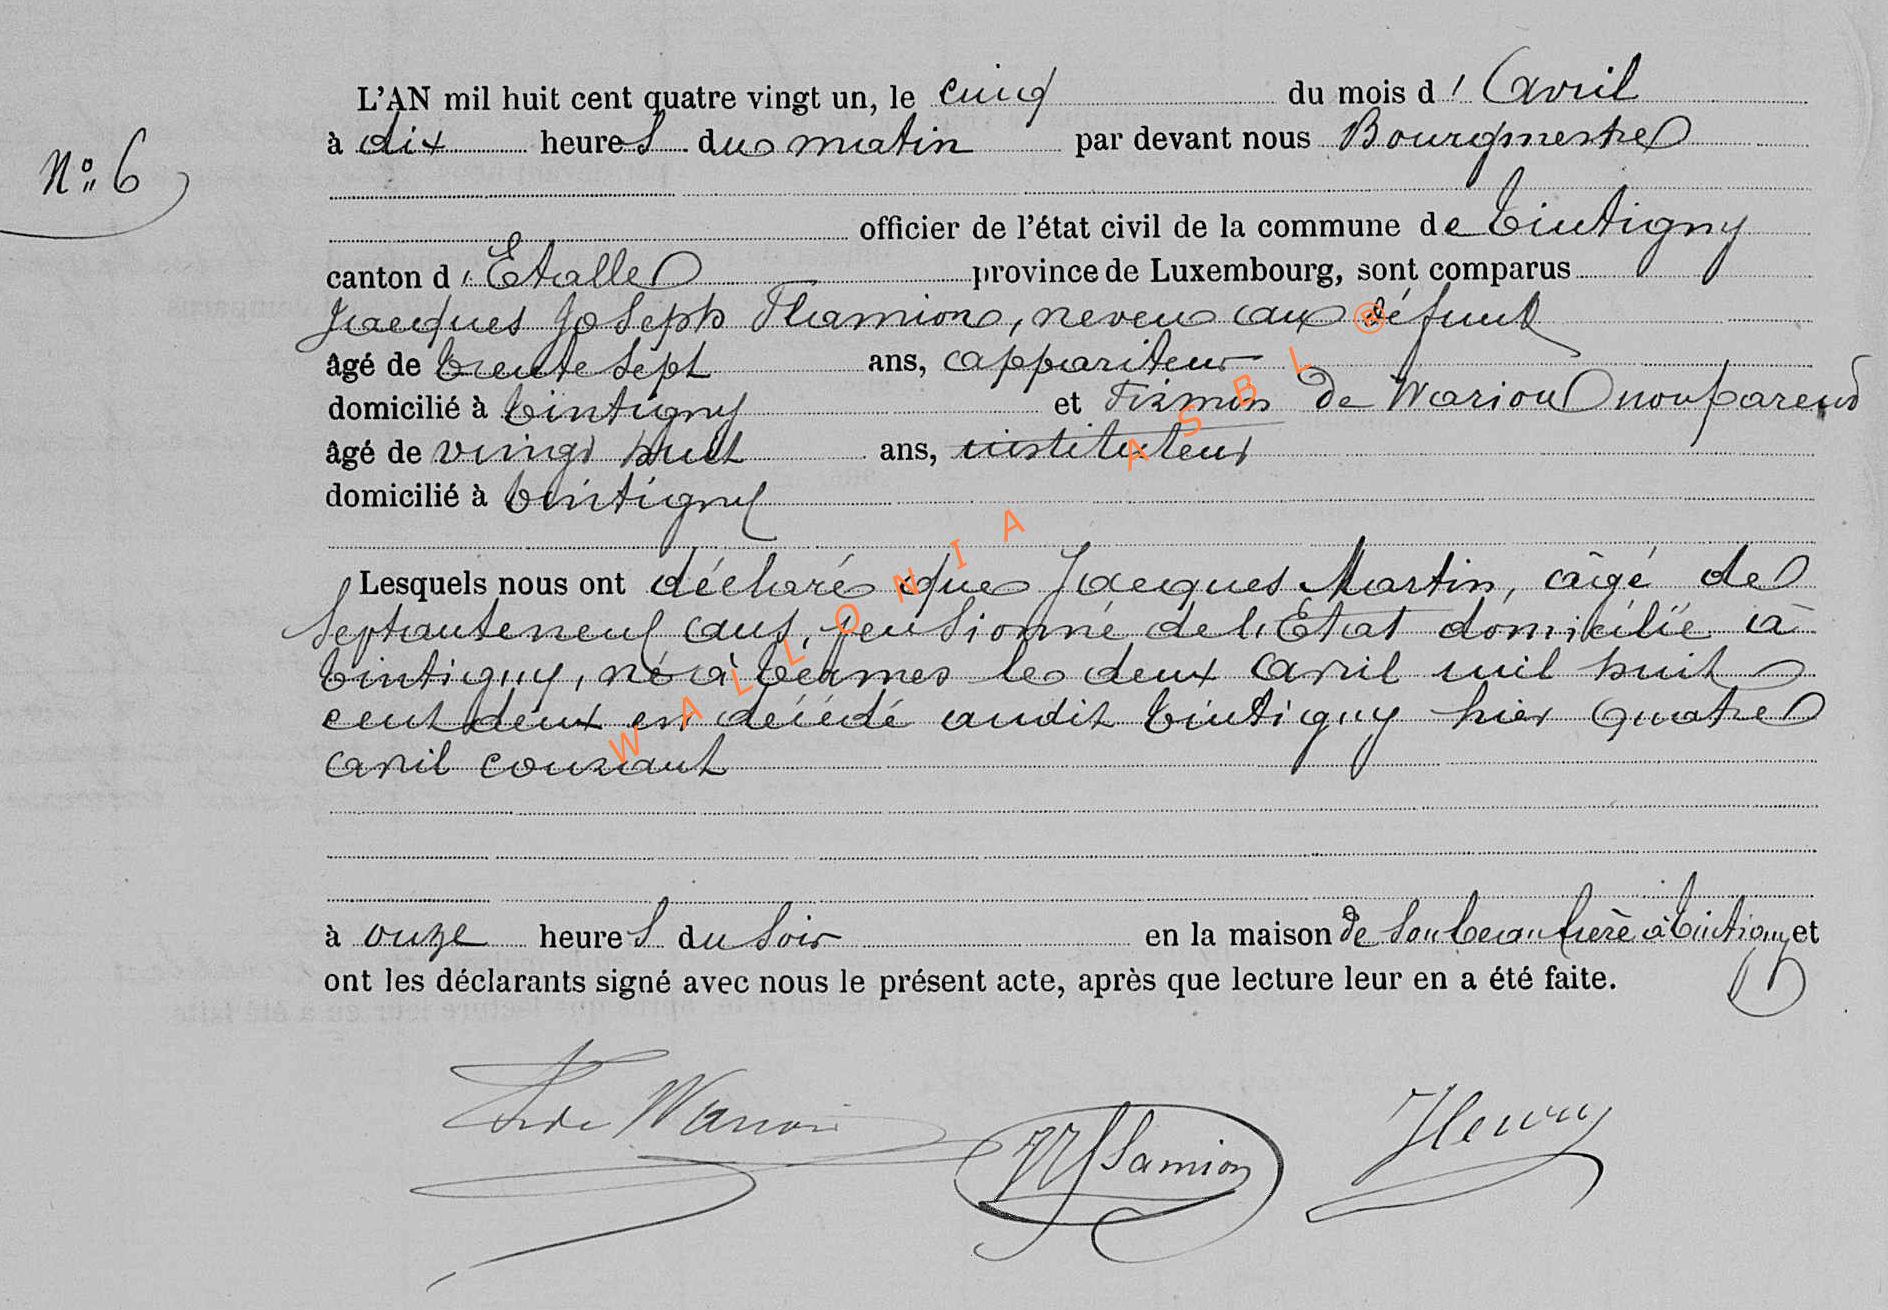 L'AN mil huit cent quatre vingt un, le cinq du mois d'Avril
N° 6
à dix heures du matin par devant nous Bourgmestre
officier de l'état civil de la commune de Tintigny
canton d'Etalle province de Luxembourg, sont comparus
Jacques Joseph Flamion, neveu au défunt
âgé de trente sept ans, appariteur
domicilié à Tintigny et Firmin De Wariou non parent
âgé de vingt huit ans, instituteur
domicilié à Tintigny
Lesquels nous ont déclaré que Jacques Martin, âgé de
septanteneuf ans, pensionné de l'Etat domicilié à
Tintigny, né à Termes le deux avril mil huit
cent deux est décédé audit Tintigny hier quatre
avril courant
à onze heures du soir en la maison de son beau frère à Tintigny et
ont les déclarants signé avec nous le présent acte, après que lecture leur en a été faite.
de Wariou JJ Flamion Henry
WALLONIA ASBL ®